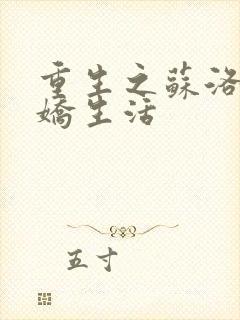 重生之蘇洛
嬌生活
五寸